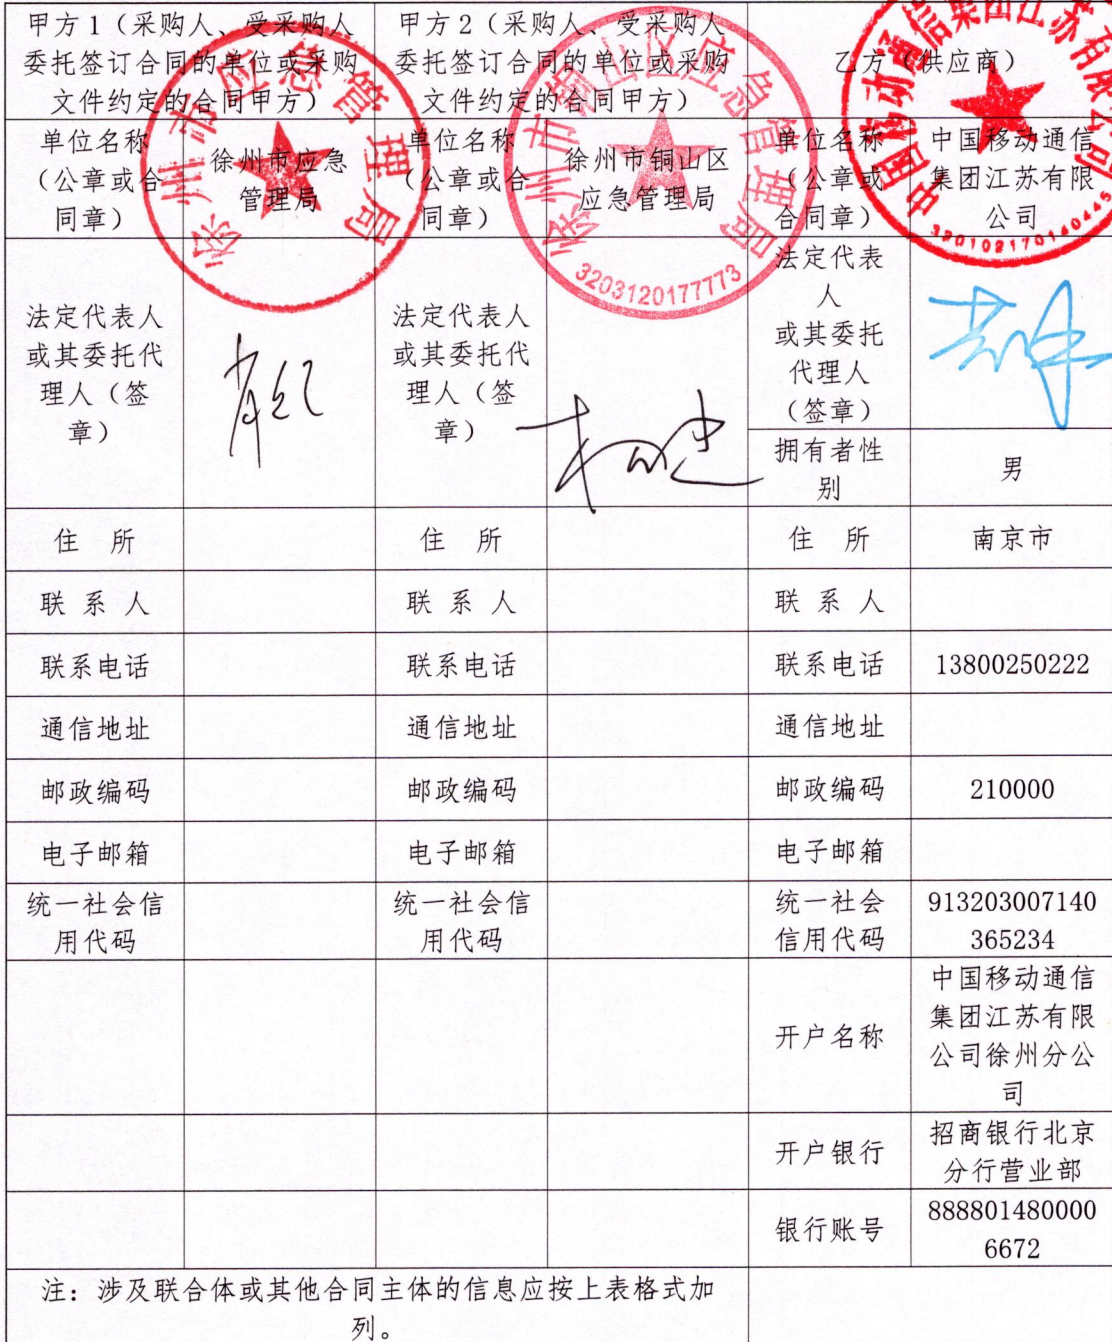 甲方1（采购人、受采购人
委托签订合同的单位或采购
文件约定的合同甲方）
甲方2（采购人、受采购人
委托签订合同的单位或采购
文件约定的合同甲方）
乙方（供应商）
单位名称
（公章或合
同章）
徐州市应急
管理局
单位名称
（公章或合
同章）
徐州市铜山区
应急管理局
单位名称
（公章或
合同章）
中国移动通信
集团江苏有限
公司
徐州市应急管理局
徐州市铜山区应急管理局
3203120177773
中国移动通信集团江苏有限公司
法定代表人
或其委托代
理人（签
章）
法定代表人
或其委托代
理人（签
章）
法定代表
人
或其委托
代理人
（签章）
拥有者性
别
男
住 所
住 所
住 所
南京市
联 系 人
联 系 人
联 系 人
联系电话
联系电话
联系电话
13800250222
通信地址
通信地址
通信地址
邮政编码
邮政编码
邮政编码
210000
电子邮箱
电子邮箱
电子邮箱
统一社会信
用代码
统一社会信
用代码
统一社会
信用代码
913203007140
365234
开户名称
中国移动通信
集团江苏有限
公司徐州分公
司
开户银行
招商银行北京
分行营业部
银行账号
888801480000
6672
注：涉及联合体或其他合同主体的信息应按上表格式加
列。